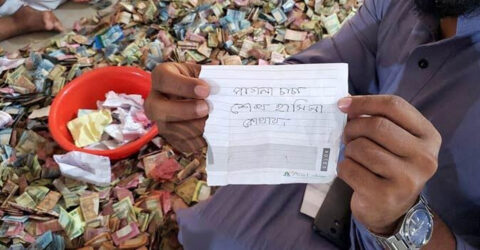 পাগলা চাচা
শেখ হাসিনা..
কোথায়.